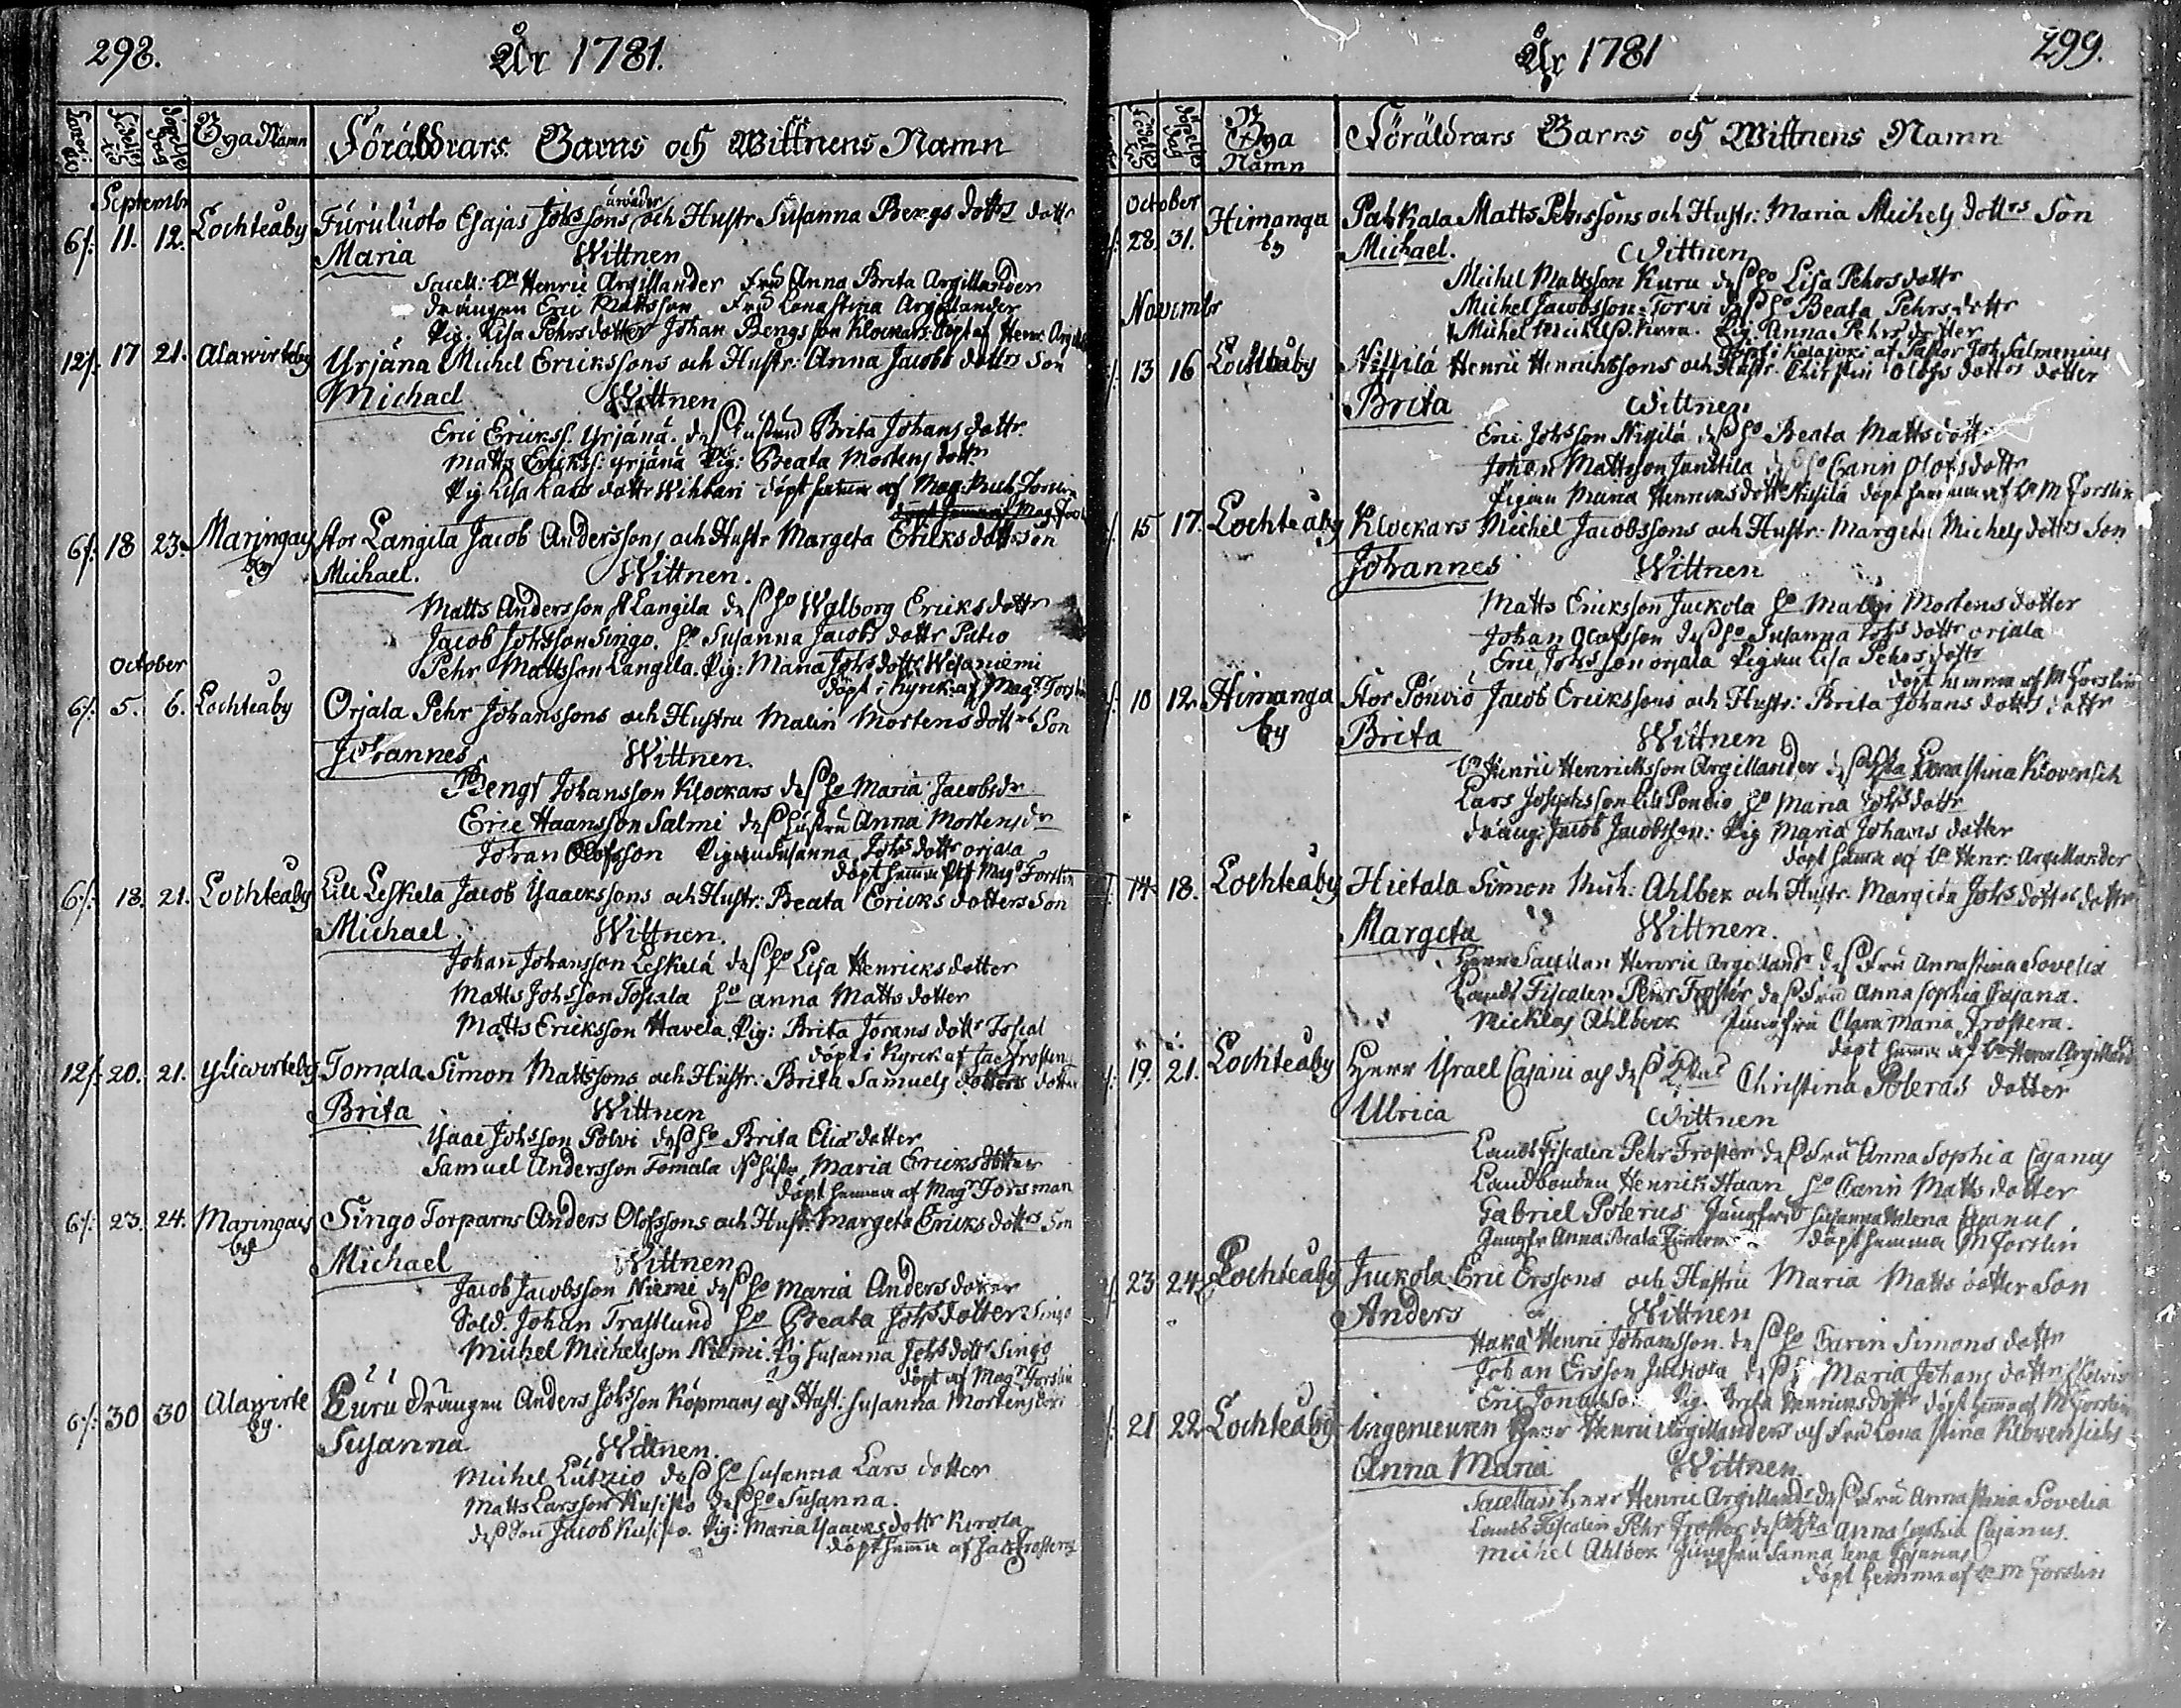 298.
År 1781.
Födelse Döpelse dag Bya Namn Föräldrars Barns och Wittnens Namn
Septembr
6/: 11. 12. Lochteåby Furuluoto Esajas Johssons och Hustr Susanna Bengs dottrs dottr
Maria Wittnen
Sacell: Hr Henric Argillander Fru Anna Brita Argillander
drängen Eric Mattsson Fru Lenastina Argillander
Pig. Lisa Pehrsdotter Johan Bengsson Klockars. döpt af Henr. Argill
12/: 17 21. Alawirteby Yrjänä Michel Erickssons och Hustr: Anna Jacobs dottrs Son
Michael Wittnen
Eric Erickss. Yrjänä. dess hustru Brita Johans dottr.
Matts Erickss: Yrjänä Pig: Beata Mortens dottr
Pig Lisa Lars dottr Wihtari döpt hemma af Mag. Forslin
6/: 18 23. Maringais by Stor Langila Jacob Anderssons och Hustr Margeta Ericks dottrs Son
Michael. Wittnen.
Matts Andersson Langila dess ho Walborg Ericksdottr
Jacob Johsson Singo. ho Susanna Jacobs dottr Patio
Pehr Mattsson Langila. Pig: Maria Johsdottr Wesaniemi
döpt i Kyrck. af Magr Forslin
October
6/: 5. 6. Lochteåby Orjala Pehr Johanssons och Hustru Malin Mortens dottrs Son
Johannes Wittnen.
Bengt Johansson Klockars dess ho Maria Jacobsdr
Eric Haansson Salmi dess hustru Anna Mortensdr
Johan Olofsson Pigan Susanna Johs dottr orjala
döpt hemma af Magr Forslin
6/: 18. 21. Lochteåby Lill Leskelä Jacob Ysaackssons och Hustr: Beata Ericks dotters Son
Michael Wittnen.
Johan Johansson Leskelä dess ho Lisa Henricks dotter
Matts Johsson Toscala ho Anna Matts dotter
Matts Ericksson Havela. Pig: Brita Jorans dottr Toscal
döpt i Kyrck. af Jac Frosten
12/: 20. 21. Yliwirteby Tomala Simon Mattssons och Hustr: Brita Samuels dotters dotter
Brita Wittnen
Ysaac Johsson Polvi dess ho Brita Elia dotter
Samuel Andersson Tomala hustr Maria Ericks dotter
döpt hemma af Magr Forsman
6/: 23. 24. Maringais by Singo Torparns Anders Olofssons och Hust: Margeta Ericks dottrs Son
Michael Wittnen
Jacob Jacobsson Niemi dess ho Maria Anders dotter
Sold. Johan Trastlund ho Beata Johs dotter Singo
Michel Michelsson Niemi. Pig Susanna Johs dottr Singo
döpt af Magr Forslin
6/: 30 30 Alawirte by. Luru Drängen Anders Johsson Köpmans och Hust: Susanna Mortens dottr
Susanna Wittnen.
Michel Lutzio dess ho Susanna Lars dotter
Matts Larsson Kusisto dess ho Susanna.
dess Son Jacob Kusisto. Pig: Maria Ysaacks dottr Kerola
döpt hemma af Jac Frosten
År 1781
299.
Bya Namn Föräldrars Barns och Wittnens Namn
October
28. 31. Himanga by Pahkala Matts Pehrssons och Hustr: Maria Michels dottrs Son
Michael. Wittnen
Michel Mattsson Kuru dess ho Lisa Pehrsdottr
Michel Jacobsson Torvi dess ho Beata Pehrsdottr
Pig. Anna Pehrs dotter
döpt i Kalajoki af Pastor Joh Salmenius
Novembr
13 16 Lochteåby Niskilä Henric Henrickssons och Hustr Christin Olofs dottrs dotter
Brita Wittnen
Eric Johsson Niskilä dess ho Beata Mattsdottr
Johan Mattsson Junttila dess ho Carin Olofsdottr
Pigan Maria Henricks dottr Niskilä döpt hemma af Hr M Forslin
15 17. Lochteåby Klockars Michel Jacobssons och Hustr: Margeta Michels dottrs Son
Johannes Wittnen
Matts Ericksson Juckola ho Malin Mortens dotter
Johan Olofsson dess ho Susanna Johs dottr orjala
Eric Johsson orjala Pigan Lisa Pehrs dottr
döpt hemma af M Forslin
10 12 Himanga by Stor Pönviö Jacob Erickssons och Hustr: Brita Johans dottrs dottr
Brita Wittnen
Hr Henric Henricksson Argillander dess Lenastina Klovensich
Lars Josephsson Lill Pönviö ho Maria Johsdottr
dräng: Jacob Jacobsson: Pig Maria Johans dotter
döpt hemma af Hr Henr: Argillander
14 18. Lochteåby Hietala Simon Mich: Ahlbek och Hustr. Margeta Johs dottrs dottr
Margeta Wittnen.
Herr Sacellan Henric Argilland dess Fru Annastina Sovelia
Lands Fiscalen Pehr Froster dess Fru Anna Sophia Cajana.
Micklas Ahlbeck Jungfru Clara Maria Frostera.
döpt hemma af Hr Henr Argilland
19. 21. Lochteåby Herr Ysrael Cajani och dess Christina Poleras dotter
Ulrica Wittnen
Lands Fiscalen Pehr Froster dess Fru Anna Sophia Cajanus
Landbonden Henrick Haan ho Carin Matts dotter
Gabriel Polerus Jungfru Susanna Helena Cajanus.
Jungfr Anna Beata döpt hemma M Forslin
23 24 Lochteåby Juckola Eric Erssons och Hustru Maria Matts dotter Son
Anders Wittnen
Henric Johansson dess ho Carin Simons dottr
Johan Ersson Juckola dess ho Maria Johans dottr
Pig. Brita Henricks dottr döpt hemma af M Forslin
21 22 Lochteåby Ingenieuren Herr Henric Argillanders och Fru Lena Stina Klovensichs
Anna Maria Wittnen
Sacellan Herr Henric Argilland dess Fru Annastina Sovelia
Lands Fiscalen Pehr Froster dess Anna Sophia Cajanus.
Michel Ahlbek Jungfru Sanna Lena Cajanus
döpt hemma af Hr M Forslin